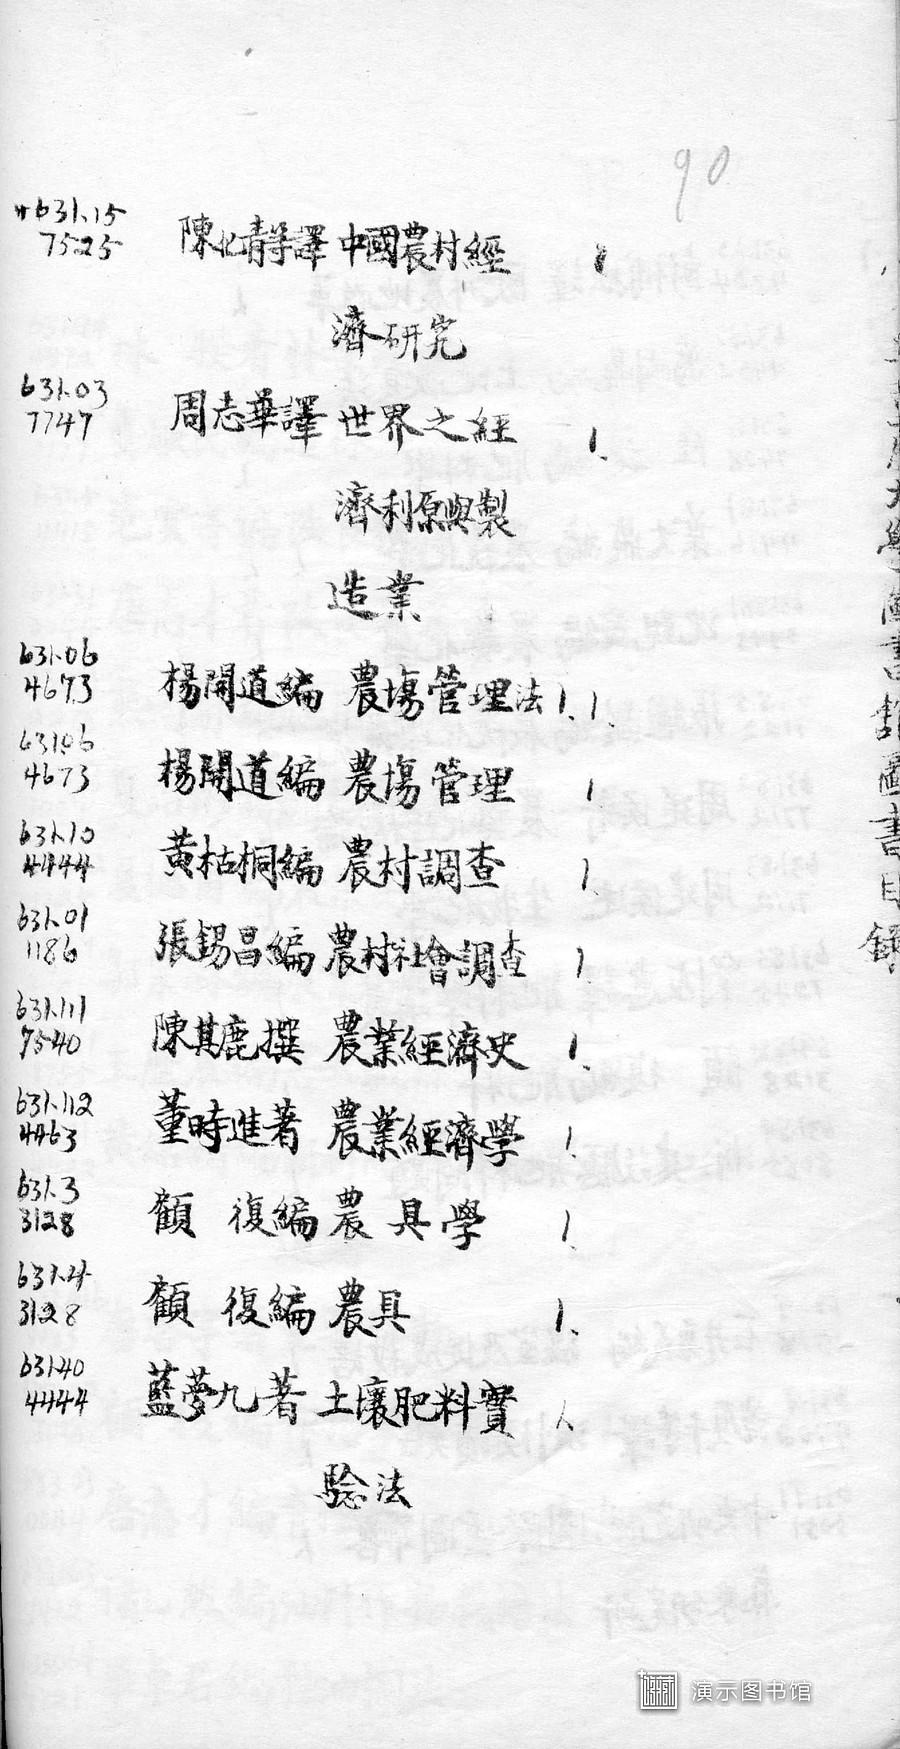 90
631.15
7525 陳化青等譯 中國農村經 1
濟研究
631.03
7747 周志華譯 世界之經 1、
濟利原與製
造業
631.06
4673 楊開道編 農場管理法 1、1、
631.06
4673 楊開道編 農場管理 1
631.10
4444 黄枯桐編 農村調查 1、
631.01
1186 張錫昌編 農村社會調查 1
631.111
7540 陳其鹿撰 農業經濟史 1、
631.112
4463 董時進著 農業經濟學 1
631.3
3128 顧 復編 農具學 1、
631.4
3128 顧 復編 農具 1、
631.40
4444 藍夢九著 土壤肥料實 1、
驗法
大學圖書館圖書目錄
演示图书馆